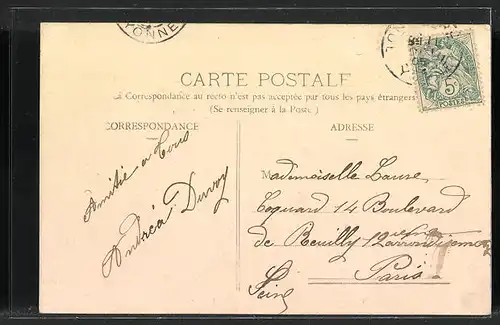 YONNE
CARTE POSTALE
La Correspondance au recto n'est pas acceptée par tous les pays étrangers
(Se renseigner à la Poste.)
CORRESPONDANCE
ADRESSE
5
POSTES
Amitié a tous
Andréa Duvoy
Mademoiselle Laure
Coquard 14 Boulevard
de Reuilly 12 arrondissement
Paris
Seine